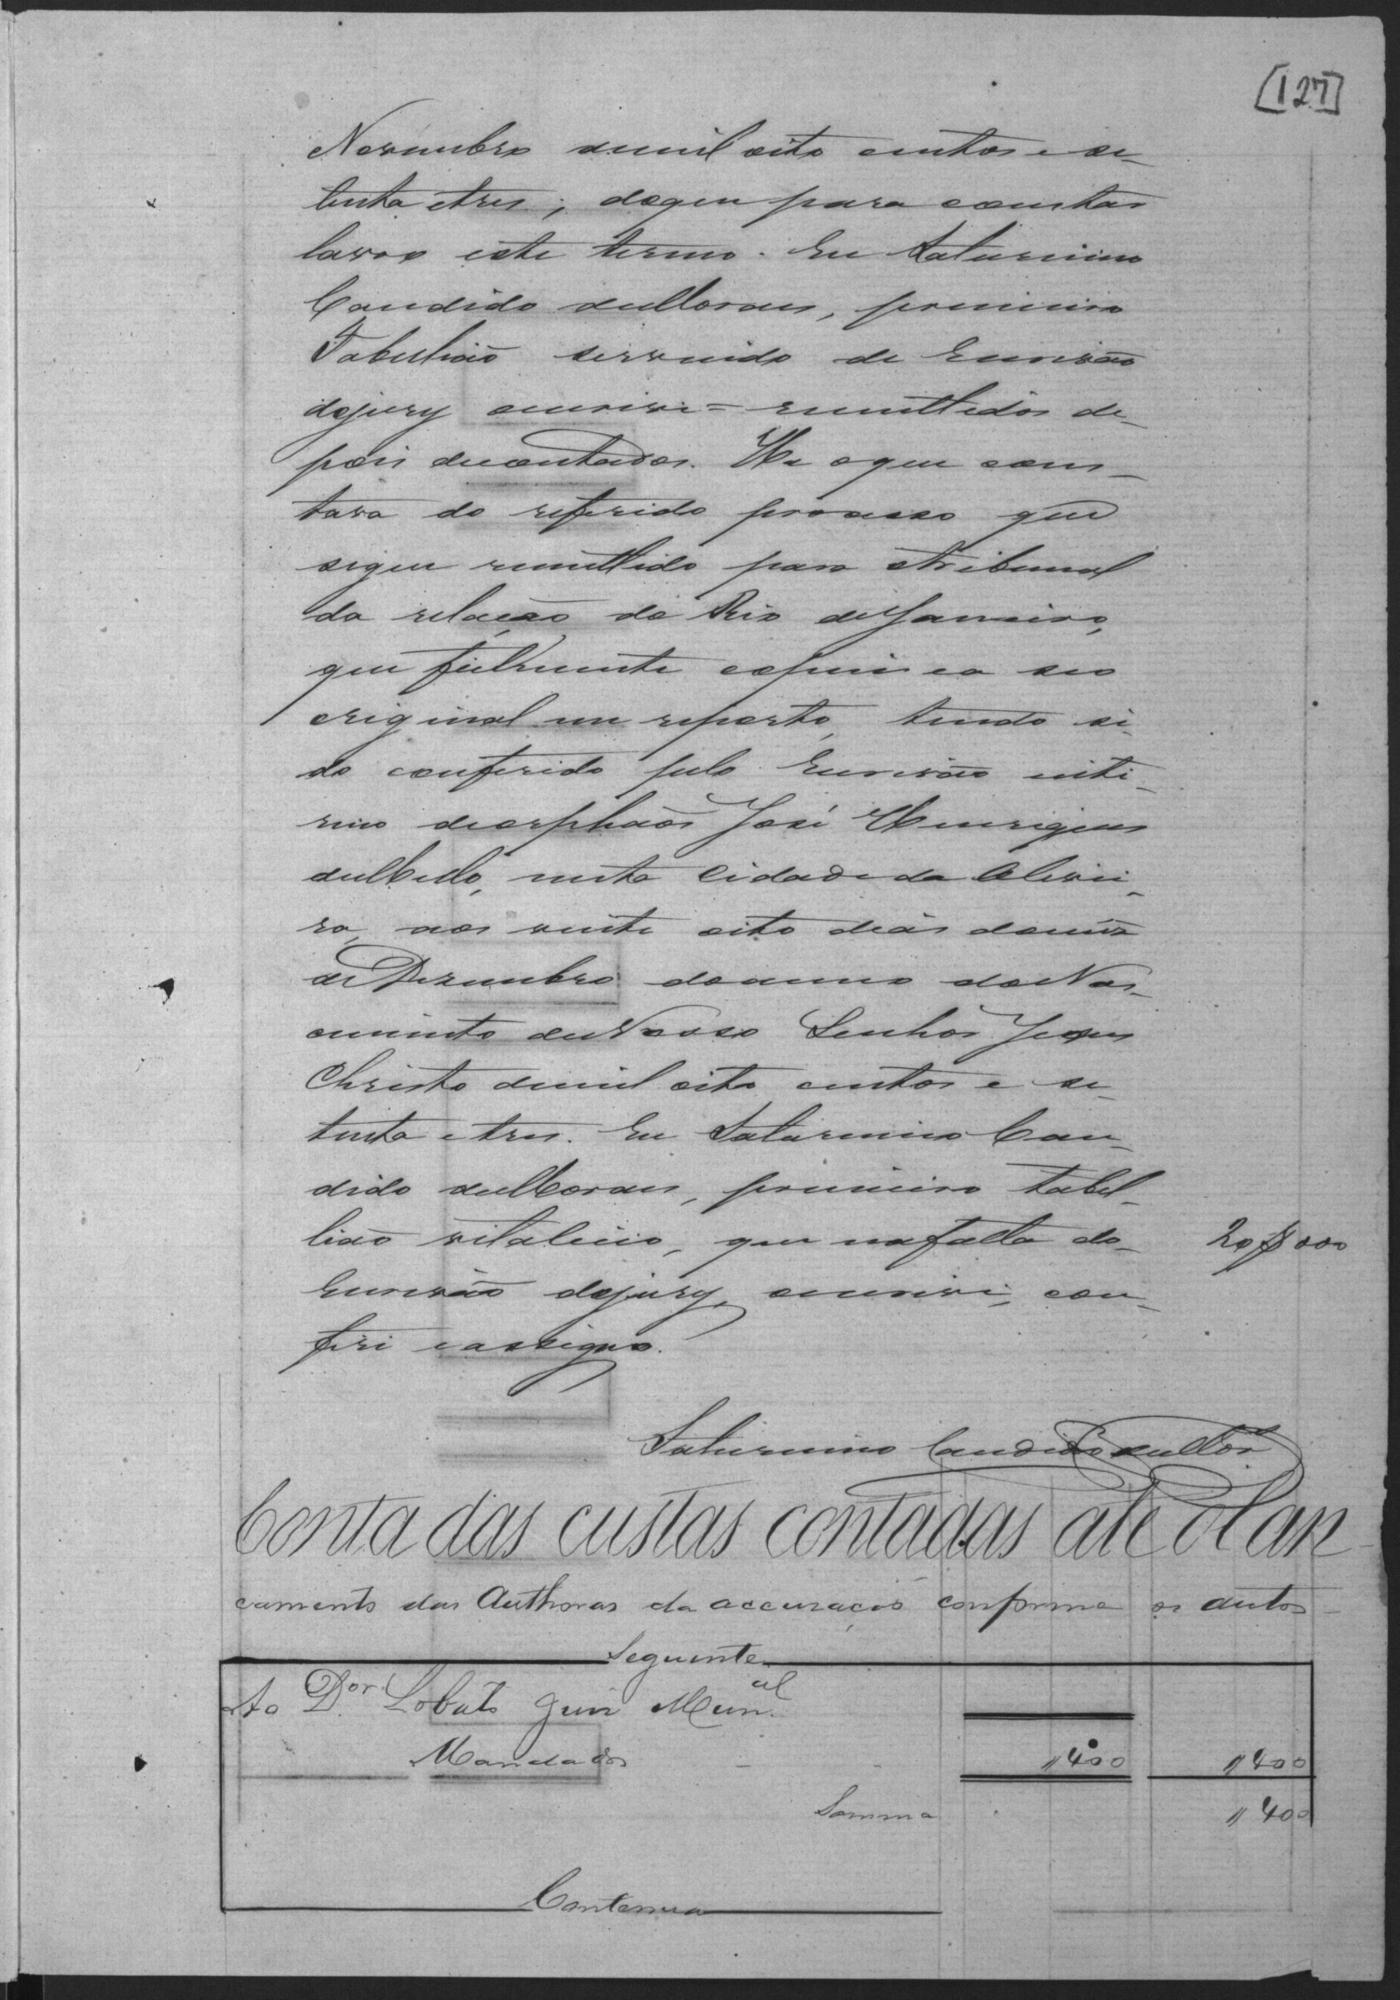 [127]
Novembro demil oito centos e se-
tenta etres; doque para constar
lavro este termo. Eu Saturnino
Candido deMoraes, primeiro
Tabelião servindo de Escrivão
dojury escrivi = remettidos de-
pois decontados. He oque cons-
tava do referido processo que
segue remettido para oTribunal
da relação do Rio deJaneiro,
que fielmente copiei eo seo
original me reporto, tendo si-
do conferido pelo Escrivão inte-
rino deorphãos José Henriques
deMello, nesta Cidade da Olivei-
ra, aos vinte oito dias domes
de Dezembro doanno doNas-
cimento deNosso Senhor Jesus
Christo demil oito centos e se-
tenta e tres. Eu Saturnino Can-
dido deMoraes, primeiro tabel-
lião vitalicio, que nafalta do
Escrivão dojury, escrivi, con-
feri eassigno.
20$000
Saturnino Candido deMor
Conta das custas contadas ate o lan-
camento das Authoras da accuzação conforme os autos
Seguinte
Ao Dor. Lobato Juiz Munal.
Mandados 1400 1400
Somma 1400
Contenua